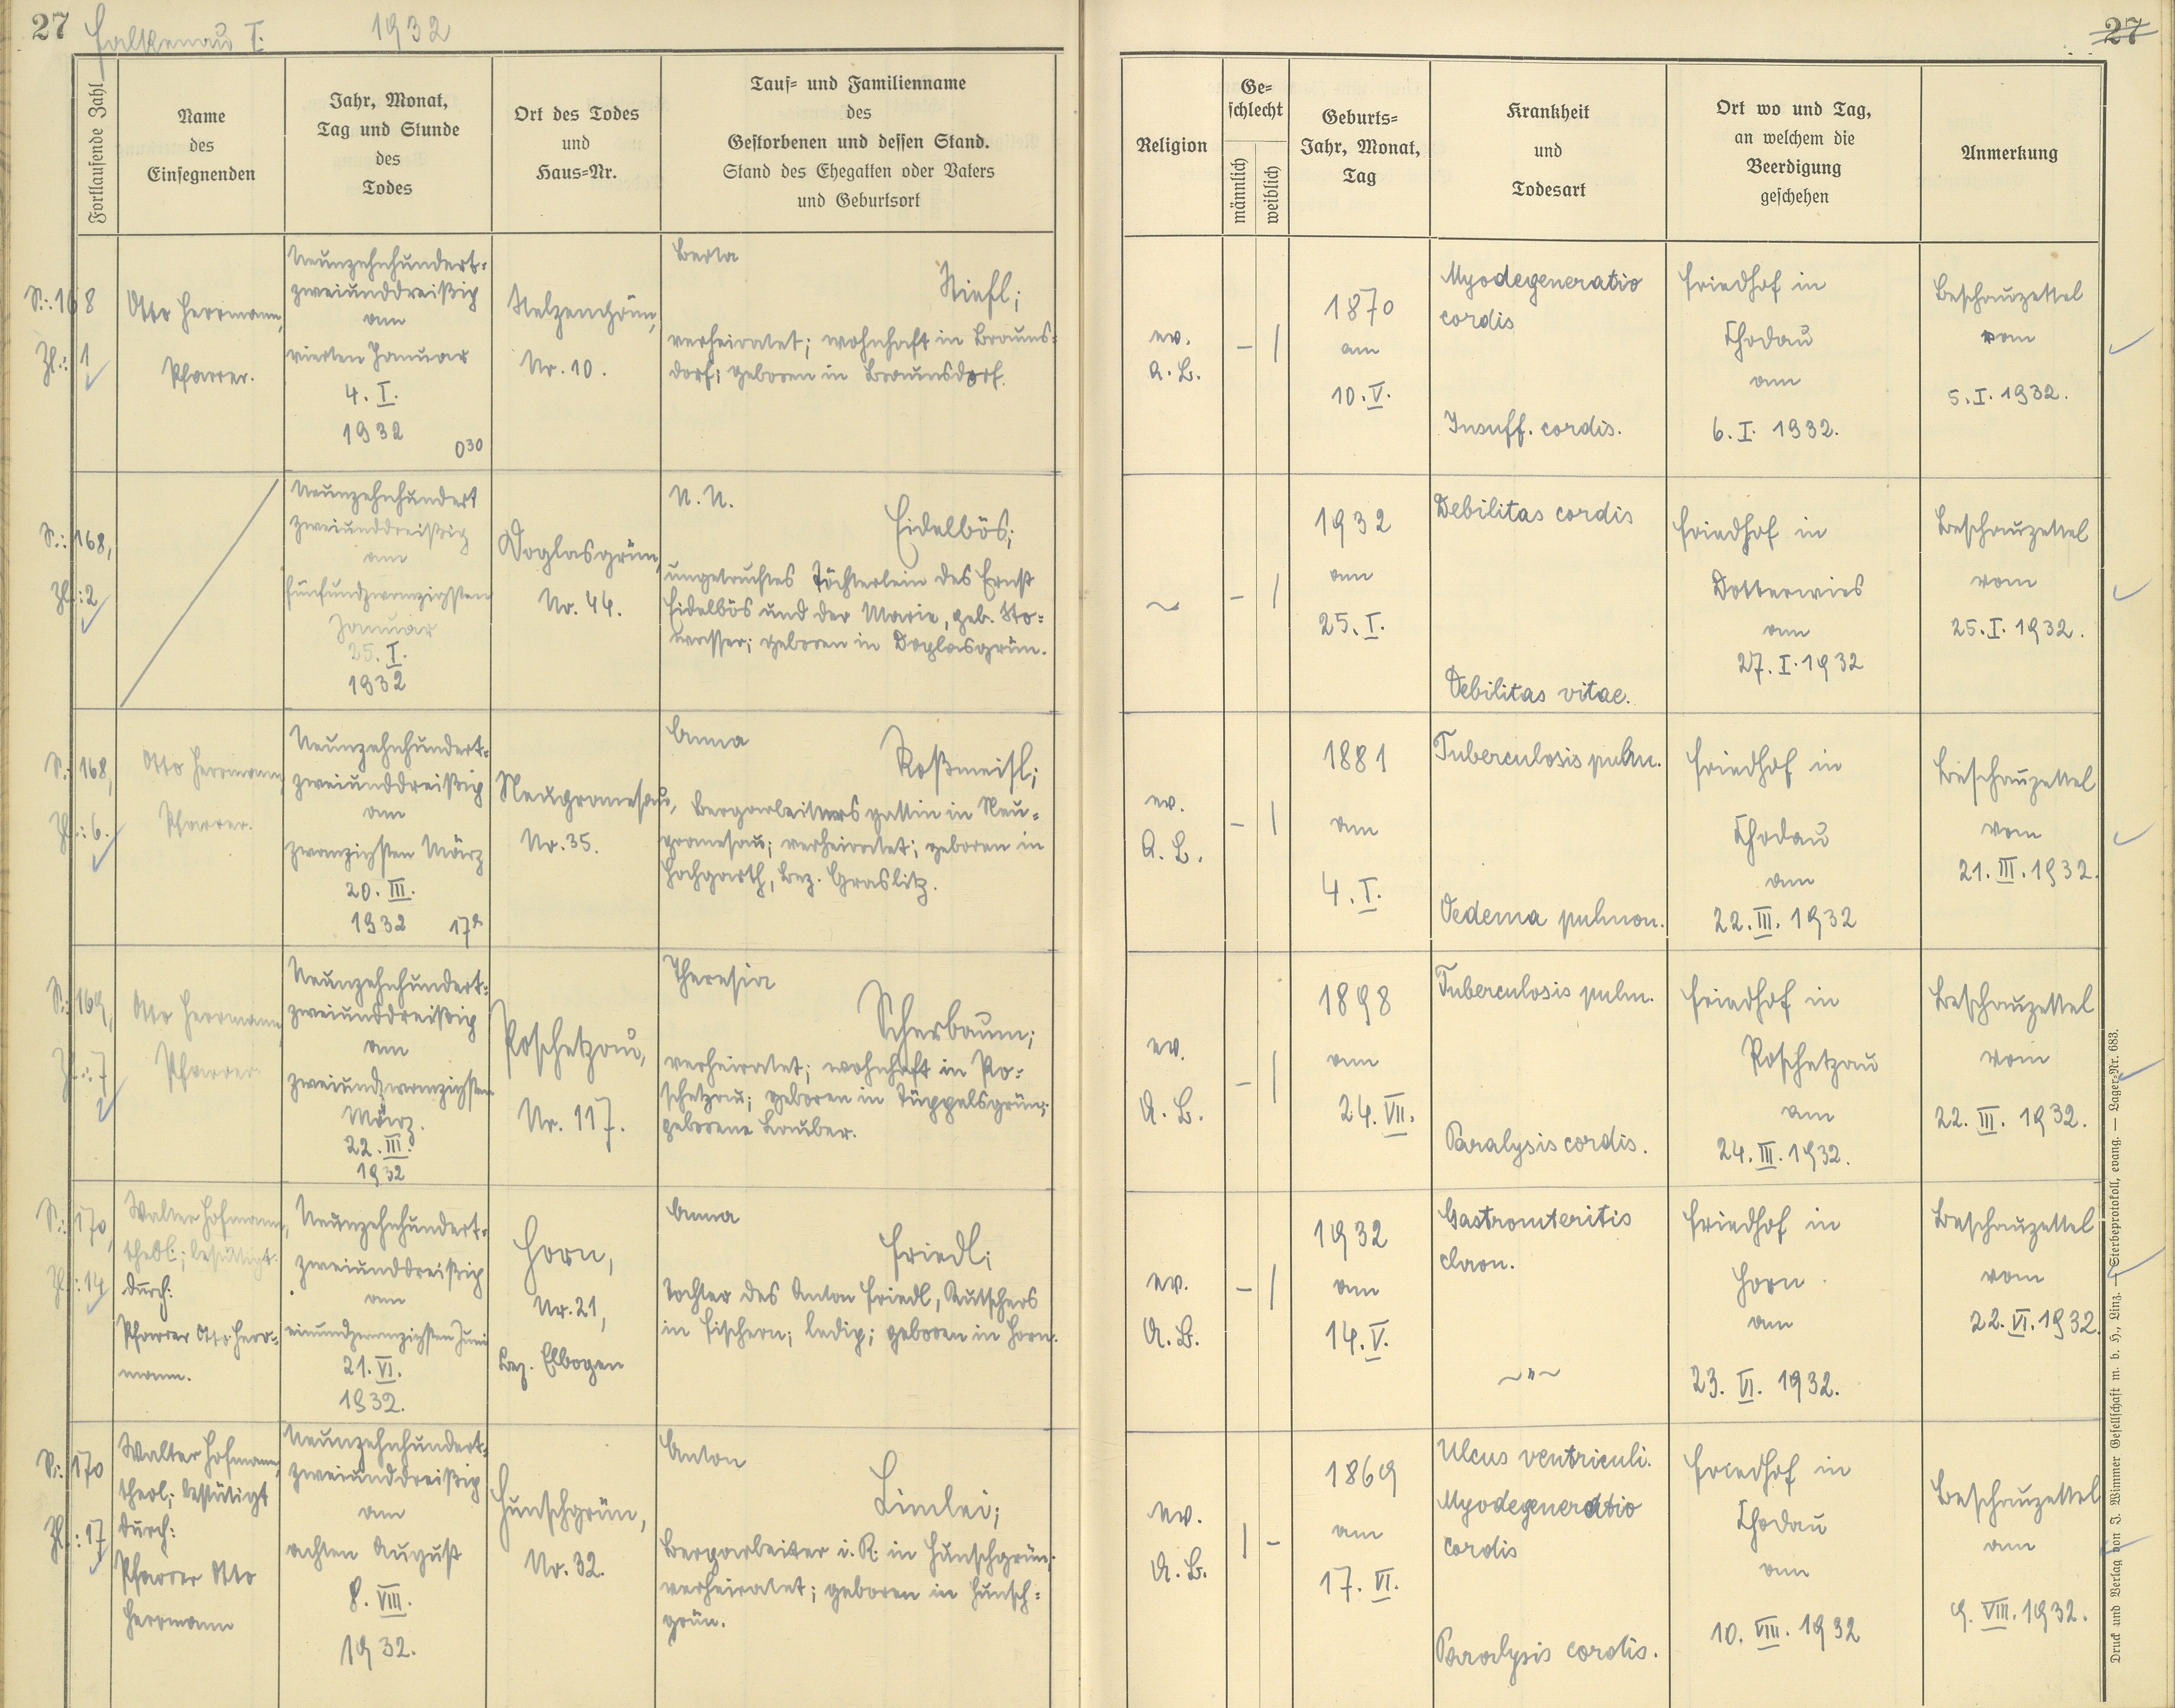 27 Falkenau I. 1932
27
Fortlaufende Zahl
Name
des
Einsegnenden
Jahr, Monat,
Tag und Stunde
des
Todes
Ort des Todes
und
Haus=Nr.
Tauf= und Familienname
des
Gestorbenen und dessen Stand.
Stand des Ehegatten oder Vaters
und Geburtsort
Religion
Ge=
schlecht
männlich
weiblich
Geburts=
Jahr, Monat,
Tag
Krankheit
und
Todesart
Ort wo und Tag,
an welchem die
Beerdigung
geschehen
Anmerkung
S.: 168
Zl.: 1
Otto Herrmann,
Pfarrer.
Neunzehnhundert=
zweiunddreißig
am
vierten Januar
4. I.
1932
0 30
Stelzengrün,
Nr. 10.
Berta
Stiefl;
verheiratet; wohnhaft in Brauns=
dorf; geboren in Braunsdorf.
ev.
A. B.
– |
1870
am
10. V.
Myodegeneratio
cordis
Insuff. cordis.
Friedhof in
Chodau
am
6. I. 1932.
Beschauzettel
vom
5. I. 1932.
S.: 168,
Zl.: 2
Neunzehnhundert
zweiunddreißig
am
fünfundzwanzigsten
Januar
25. I.
1932
Doglasgrün,
Nr. 44.
N. N.
Eidelbös;
ungetauftes Töchterlein des Ernst
Eidelbös und der Marie, geb. Sto=
wasser; geboren in Doglasgrün.
~
– |
1932
am
25. I.
Debilitas cordis
Debilitas vitae.
Friedhof in
Dotterwies
am
27. I. 1932
Beschauzettel
vom
25. I. 1932.
S.: 168,
Zl.: 6.
Otto Herrmann,
Pfarrer.
Neunzehnhundert=
zweiunddreißig
am
zwanzigsten März
20. III.
1932 17h
Neugramesau,
Nr. 35.
Anna
Roßmeisl;
Bergarbeitersgattin in Neu=
gramesau; verheiratet; geboren in
Hochgarth, Bez. Graslitz.
ev.
A. B.
– |
1881
am
4. I.
Tuberculosis pulm.
Oedema pulmon.
Friedhof in
Chodau
am
22. III. 1932
Beschauzettel
vom
21. III. 1932.
S.: 169,
Zl.: 7
Otto Herrmann,
Pfarrer
Neunzehnhundert=
zweiunddreißig
am
zweiundzwanzigsten
März.
22. III.
1932
Poschetzau,
Nr. 117.
Theresia
Scherbaum;
verheiratet; wohnhaft in Po=
schetzau; geboren in Tüppelsgrün;
geborene Lauber.
ev.
A. B.
– |
1898
am
24. VII.
Tuberculosis pulm.
Paralysis cordis.
Friedhof in
Poschetzau
am
24. III. 1932.
Beschauzettel
vom
22. III. 1932.
S.: 170,
Zl.: 14
Walter Hofmann,
theol.; bestätigt
durch:
Pfarrer Otto Herr=
mann.
Neunzehnhundert=
zweiunddreißig
am
einundzwanzigsten Juni
21. VI.
1932.
Horn,
Nr. 21,
Bez. Elbogen
Anna
Friedl;
Tochter des Anton Friedl, Kutschers
in Fischern; ledig; geboren in Horn.
ev.
A. B.
– |
1932
am
14. V.
Gastroenteritis
chron.
~ " ~
Friedhof in
Horn
am
23. VI. 1932.
Beschauzettel
vom
22. VI. 1932.
S.: 170
Zl.: 17
Walter Hofmann,
theol.; bestätigt
durch:
Pfarrer Otto
Herrmann
Neunzehnhundert=
zweiunddreißig
am
achten August
8. VIII.
1932.
Hunschgrün,
Nr. 32.
Anton
Limlei;
Bergarbeiter i. R. in Hunschgrün;
verheiratet; geboren in Hunsch=
grün.
ev.
A. B.
| –
1869
am
17. VI.
Ulcus ventriculi.
Myodegeneratio
cordis
Paralysis cordis.
Friedhof in
Chodau
am
10. VIII. 1932
Beschauzettel
am
9. VIII. 1932.
Druck und Verlag von J. Wimmer Gesellschaft m. b. H., Linz. — Sterbeprotokoll, evang. — Lager=Nr. 683.